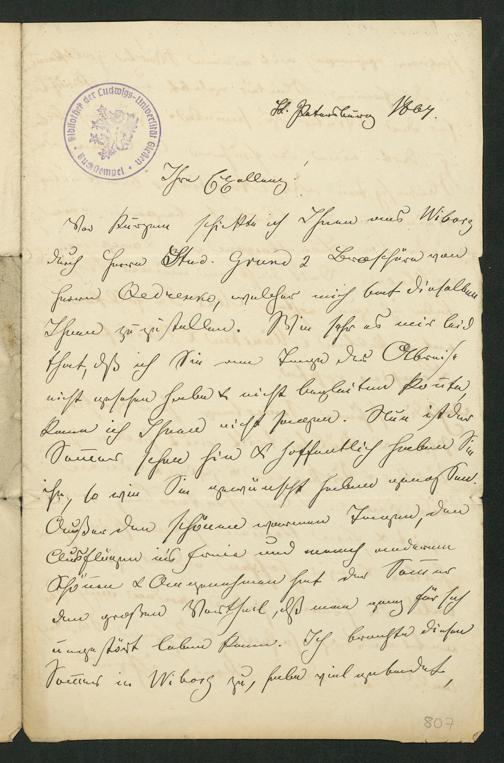 Bibliothek der Ludwigs-Universität Gießen
Buchstempel
St. Petersburg 1867.
Ihre Excellenz!
Vor kurzem schickte ich Ihnen aus Wiborg
durch Herrn Stud. Grund 2 Broschüren von
Herrn welcher mich bat dieselben
Ihnen zuzustellen. Wie sehr es mir leid
that, dß ich Sie am Tage der Abreise
nicht gesehen habe & nicht begleiten konnte,
kann ich Ihnen nicht sagen. Nun ist der
Sommer schon hin & hoffentlich haben Sie
ihn, so wie Sie gewünscht haben genossen.
Außer den schönen warmen Tagen, den
Ausflügen ins freie und manch anderem
Schönen & Angenehmen hat der Sommer
den großen Vortheil, dß man ganz für sich
ungestört leben kann. Ich brachte diesen
Sommer in Wiborg zu, habe viel gebadet,
807